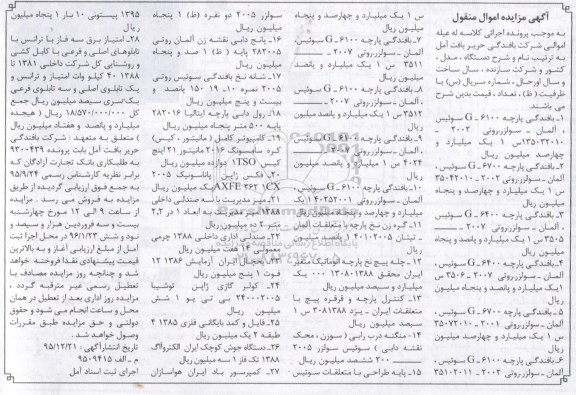 آگهی مزایده اموال منقول
به موجب پرونده اجرائی کلاسه له علیه
اموالی شرکت بافندگی حریر بافت آمل
به ترتیب نام و شرح دستگاه ، مدل ،
کشور و شرکت سازنده ، سال ساخت
و سال اورحال ، شماره سریال (س) با
ظرفیت (ظ) ، تعداد ، قیمت بدین شرح
می باشند.
۱ـ بافندگی پارچه ۶۱۰۰ ـ G سوئیس
، آلمان ـ سولزرروتی ۲۰۰۲ ـ
۱۳۵۰۳۲۰۱۰س ۱ یک میلیارد و
چهارصد میلیون ریال
۲ـ بافندگی پارچه ۶۷۰۰ ـ G سوئیس ،
آلمان ـ سولزرروتی ۲۰۰۲ ـ ۳۵۰۴۲۰۱۰
س ۱ یک میلیارد و چهارصد و پنجاه
میلیون ریال
۳ـ بافندگی پارچه ۶۴۰۰ ـ G سوئیس
آلمان ـ سولزرروتی ۲۰۰۷ ـ
۳۵۰۵ س ۱ یک میلیارد و پانصد و پنجاه
میلیون ریال
۴ـ بافندگی پارچه ۶۲۰۰ ـ G سوئیس ،
آلمان ـ سولزرروتی ۲۰۰۷ ـ ۳۵۰۶ س
۱یک میلیارد و پانصد و پنجاه میلیون
ریال
۵ـ بافندگی پارچه ۶۷۰۰ ـ G سوئیس ،
آلمان ـ سولزرروتی ۲۰۰۱ ـ ۳۵۰۷۲۰۱۰
س ۱ یک میلیارد و چهارصد میلیون
ریال
۶ـ بافندگی پارچه ۶۱۰۰ ـ G سوئیس ،
آلمان ـ سولزرروتی ۲۰۰۲ ـ ۳۵۱۰۲۰۱۱
س ۱ یک میلیارد و چهارصد و پنجاه
میلیون ریال
۷ـ بافندگی پارچه ۶۱۰۰ ـ G سوئیس،
آلمان ـ سولزرروتی ۲۰۰۷ ـ
۳۵۱۱ س ۱ یک میلیارد و پانصد
میلیون ریال
۸ـ بافندگی پارچه ۶۱۰۰ ـ G سوئیس
، آلمان ـ سولزرروتی ۲۰۰۷ ـ
۳۵۱۲ س ۱ یک میلیارد و پانصد میلیون
ریال
۹ـ بافندگی پارچه ۶۱۰۰ ـ G سوئیس
، آلمان ـ سولزرروتی ۲۰۰۷ ـ
۴۰۲۴ س ۱ یک میلیارد و پانصد میلیون
ریال
۱۰ـ بافندگی پارچه ۶۱۰۰ ـ G سوئیس،
آلمان ـ سولزرروتی ۴۰۲۵۲۰۰۱ ۱ یک
میلیارد و چهارصد و پنجاه میلیون ریال
۱۱ـ گره زن نخ پارچه با متعلقات آلمان
ـ تیتان ۴۰۱۰۲۰۰۵ ۱ پانصد میلیون
ریال
۱۲ـ چله پیچ نخ پارچه اتوماتیک صفر
ایران محقق ۱۳۸۸ـ۱۳۰۸۰ ۰۰۰ یک
میلیارد و سیصد میلیون ریال
۱۳ـ کنترل پارچه و قرقره پیچ با
متعلقات ایران ـ یزد ۳۰۸۱۳۸۸ س ۱
سیصد میلیون ریال
۱۴ـ منگنه درب رابی ( سوزن ، محک
نقشه دابی ) سوئیس سولزر ۲۰۰۵
ـ ۲۰۰ ششصد میلیون ریال
۱۵ـ پایه طراحی با متعلقات سوئیس ـ
سولزر ۲۰۰۵ دو نفره (ظ) ۱ پنجاه
میلیون ریال
۱۶ـ پانچ دابی نقشه زن آلمان روتی
۲۸۲۰۰۵ پایه (ظ) ۱ صد و پنجاه
میلیون ریال
۱۷ـ شانه نخ بافندگی سوئیس روتی
۲۰۰۵ نمره ۱۰ـ۱۹ ۱۵۰ پانصد و
بیست و پنج میلیون ریال
۱۸ـ رول دابی پارچه ایتالیا ۲۸۲۰۱۶
پایه ۵۰۰ متر پنجاه میلیون ریال
۱۹ـ کامپیوتر کامل ( مانیتور ، کیس)
کره سامسونگ ۲۰۱۶ مانیتور ۲۱ اینچ
کیس TSO۱ دوازده میلیون ریال
۲۰ـ فکس ژاپن پاناسونیک ۲۰۰۵
ریال
۲۱ـ میز مدیریت با سه صندلی داخلی
۲۲ـ صندلی اداری داخلی ۱۳۸۸ چرمی
۲۳ـ یخچال ایران آزمایش ۱۳۸۶ ۱۲
فوت ۱ پنج میلیون ریال
۲۴ـ کولر گازی ژاپن توشیبا
۲۴۰۰۰۲۰۰۵ بی تی یو ۱ شش
میلیون ریال
۲۵ـ فایل و کمد بایگانی فلزی ۱۳۸۵ ۴
طبقه ۲ یک میلیون ریال
۲۶ـ دستگاه جوش کوچک ایران الکترواگ
۱۳۸۸ تک فاز ۱ سه میلیون ریال
۲۷ـ کمپرسور باد ایران هواسازان
۱۳۹۵ پیستونی ۱۰ بار ۱ پنجاه میلیون
ریال
۲۸ـ امتیاز برق سه فاز با ترانس با
تابلوهای اصلی و فرعی با کابل کشی
و روشنایی کل شرکت داخلی ۱۳۸۱ تا
۱۳۸۸ ۴۰ کیلو وات امتیاز و ترانس و
یک تابلوی اصلی و سه تابلوی فرعی
یک سری سیصد میلیون ریال جمع
کل ۱۸/۵۷۰/۰۰۰/۰۰۰ ریال ( هیجده
میلیارد و پانصد و هفتاد میلیون ریال
) متعلق به متعهد : شرکت بافندگی
حریر بافت آمل بابت پرونده ۹۳۰۰۴۳۹
به طلبکاری بانک تجارت آزادگان که
برابر نظریه کارشناس رسمی ۹۵/۹/۲۴
به جمع فوق ارزیابی گردیده از طریق
مزایده به فروش می رسد . مزایده
از ساعت ۹ الی ۱۲ مورخ چهارشنبه
بیست و سه فروردین هزار و سیصد و
نود و شش ۹۶/۱/۲۳ در محل اجرا ثبت
آمل از مبلغ ارزیابی آغاز و به بالاترین
قیمت پیشنهادی نقدا فروخته خواهد
شد و چنانچه روز مزایده مصادف با
تعطیل رسمی غیر مترقبه گردد ،
مزایده روز اداری بعد از تعطیل در همان
محل و ساعت انجام می شود و حقوق
دولتی و حق مزایده طبق مقررات
وصول خواهد شد.
تاریخ انتشار آگهی : ۹۵/۱۲/۲۱
م ـ الف ۹۵۰۹۴۱۵
اجرای ثبت اسناد آمل